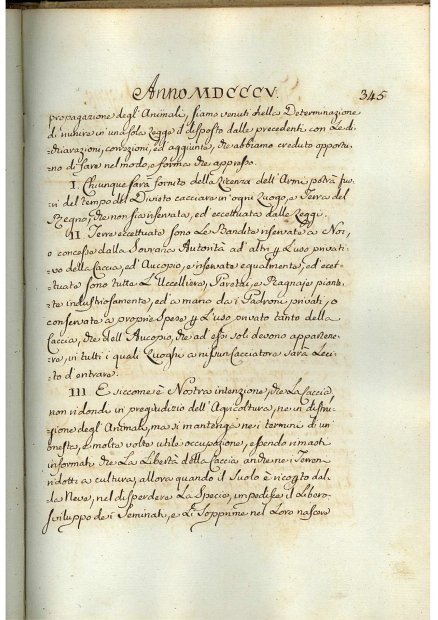 Anno MDCCCV. 345
propagazione degl'Animali, siamo venuti nella Determinazione
di riunire in una sola Legge il disposto dalle precedenti con Le di-
chiarazioni, correzioni, ed aggiunte, che abbiamo creduto opportu-
no di fare nel modo, e forma che appresso.
I. Chiunque sarà fornito della Licenza dell'Armi potrà fuo-
ri del tempo del Divieto cacciare in ogni Luogo, e Terra del
Regno, che non sia riservata, ed eccettuata dalle Leggi.
II. Terre eccettuate sono Le Bandite riservate a Noi,
o concesse dalla Sovrana Autorità ad altri p L'uso privati-
vo della Caccia, ed Aucopio, e riservate egualmente, ed eccet-
tuate sono tutte L'Uccelliere, Paretai, e Ragnaje pianta-
te industriosamente, ed a mano dai Padroni privati, o
conservate a proprie spese p L'uso privato tanto della
Caccia, che dell'Aucopio, che ad essi soli devono appartene-
re, in tutti i quali Luoghi a nissun Cacciatore sarà Leci-
to d'entrare.
III. E siccome è Nostra intenzione, che La Caccia
non ridondi in pregiudizio dell'Agricoltura, nè in distru-
zione degl'Animali, ma si mantenga nei termini di un'
onesta, e molte volte utile occupazione, essendo rimasti
informati che La Libertà della Caccia anche nei Terreni
ridotti a cultura, allora quando il Suolo è ricoperto dal-
la Neve, nel disperdere La Specie, impedisce il Libero
sviluppo dei Seminati, e Li sopprime nel Loro nascere